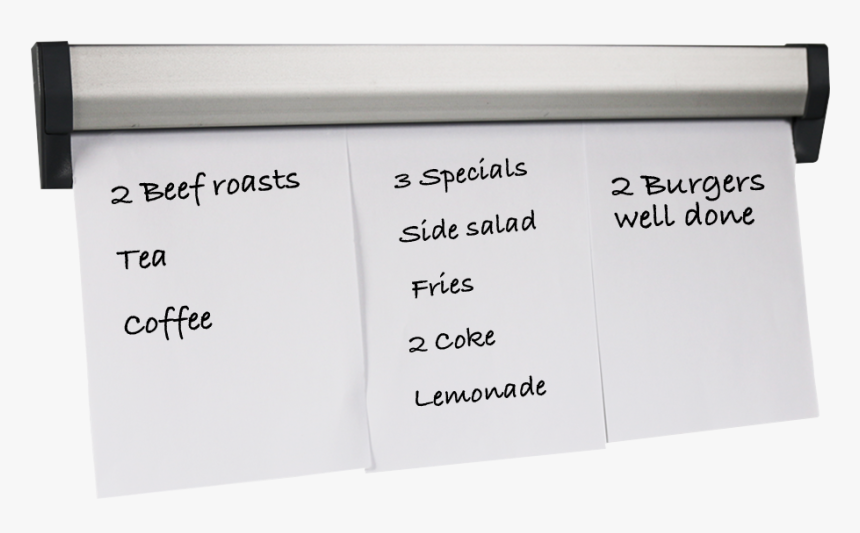 2 Beef roasts
Tea
Coffee
3 Specials
Side salad
Fries
2 Coke
Lemonade
2 Burgers
well done